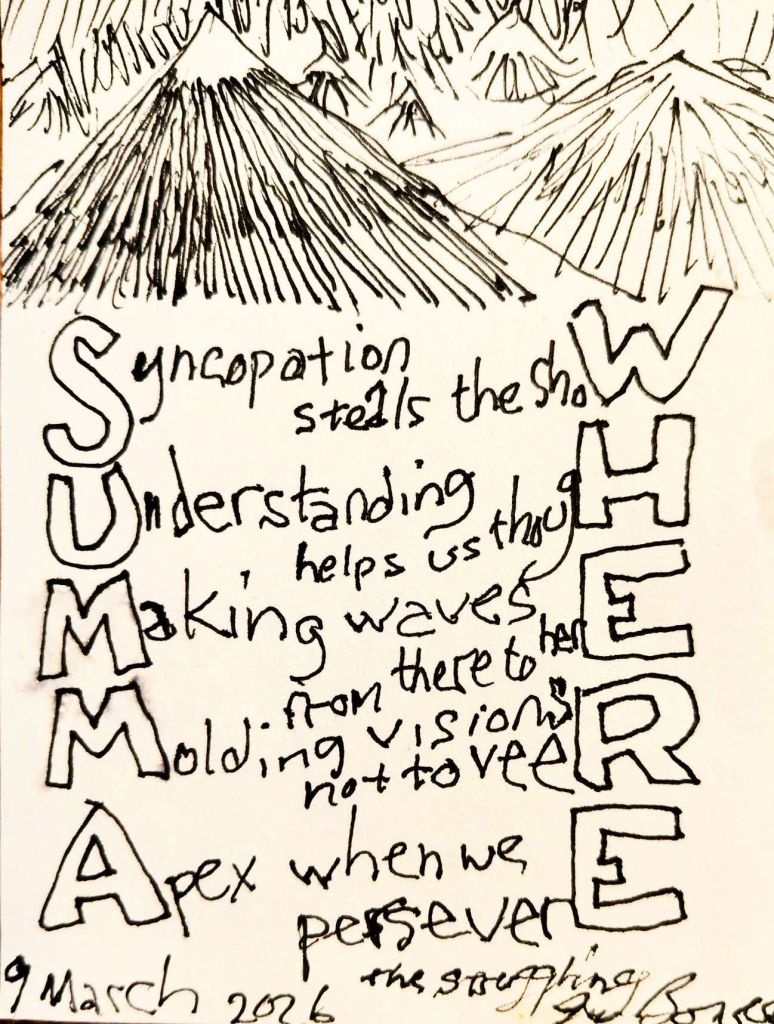 Syncopation
steals the shoW
Understanding
helps us thougH
Making waves
from there to herE
Molding visions
not to veeR
Apex when we
perseverE
9 March 2026 the struggling